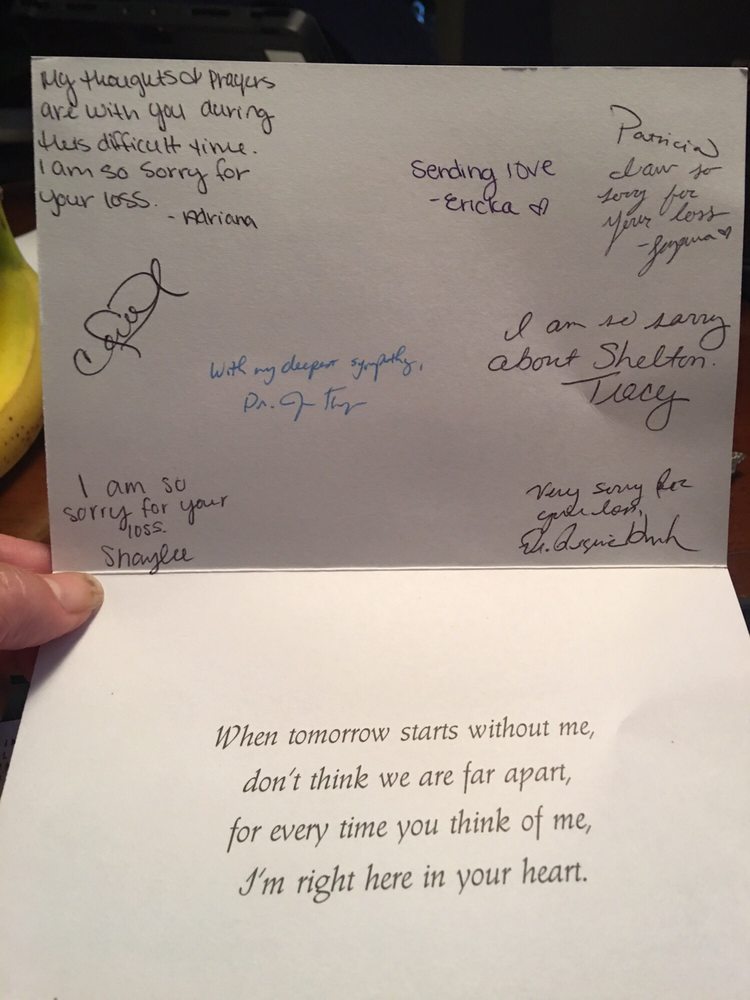 My thoughts & Prayers
are with you during
this difficult time.
I am so sorry for
your loss.
- Adriana
Sending love
- Ericka ♡
Patricia
I am so
sorry for
your loss
I am so sorry
about Shelton.
Tracy
With my deepest sympathy,
Dr.
I am so
sorry for your
loss.
Shaylee
Very sorry for
your loss,
Dr.
When tomorrow starts without me,
don't think we are far apart,
for every time you think of me,
I'm right here in your heart.